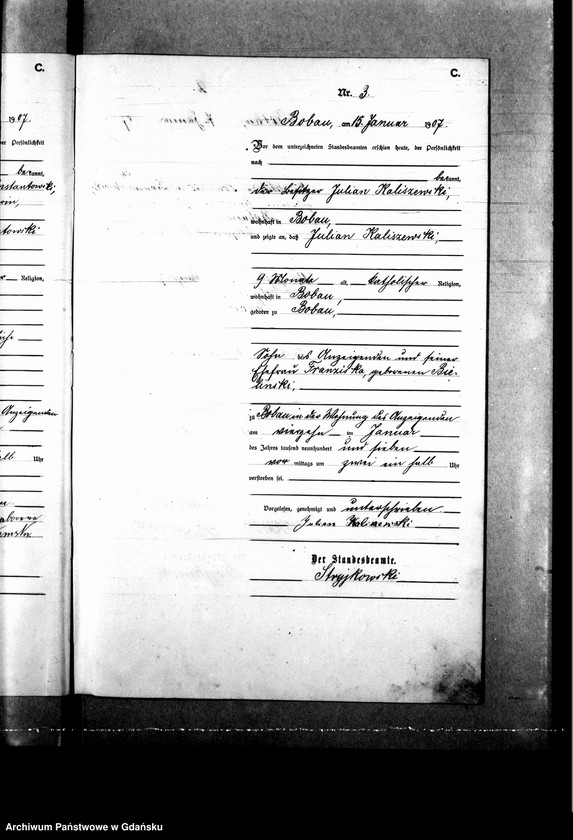 C.
19 07.
der Persönlichkeit
bekannt,
Religion,
Anzeigenden
Uhr
C.
Nr. 3.
Bobau, am 15. Januar 1907.
Vor dem unterzeichneten Standesbeamten erschien heute, der Persönlichkeit
nach
bekannt,
der Besitzer Julian Kaliszewski,
wohnhaft in Bobau,
und zeigte an, daß Julian Kaliszewski,
9 Monate alt, katholischer Religion,
wohnhaft in Bobau,
geboren zu Bobau,
Sohn des Anzeigenden und seiner
Ehefrau Franziska, geborenen Bie-
linski,
zu Bobau in der Wohnung des Anzeigenden
am vierzehn ten Januar
des Jahres tausend neunhundert und sieben
vor mittags um zwei ein halb Uhr
verstorben sei.
Vorgelesen, genehmigt und unterschrieben
Julian Kaliszewski
Der Standesbeamte.
Stryjkowski
Archiwum Państwowe w Gdańsku